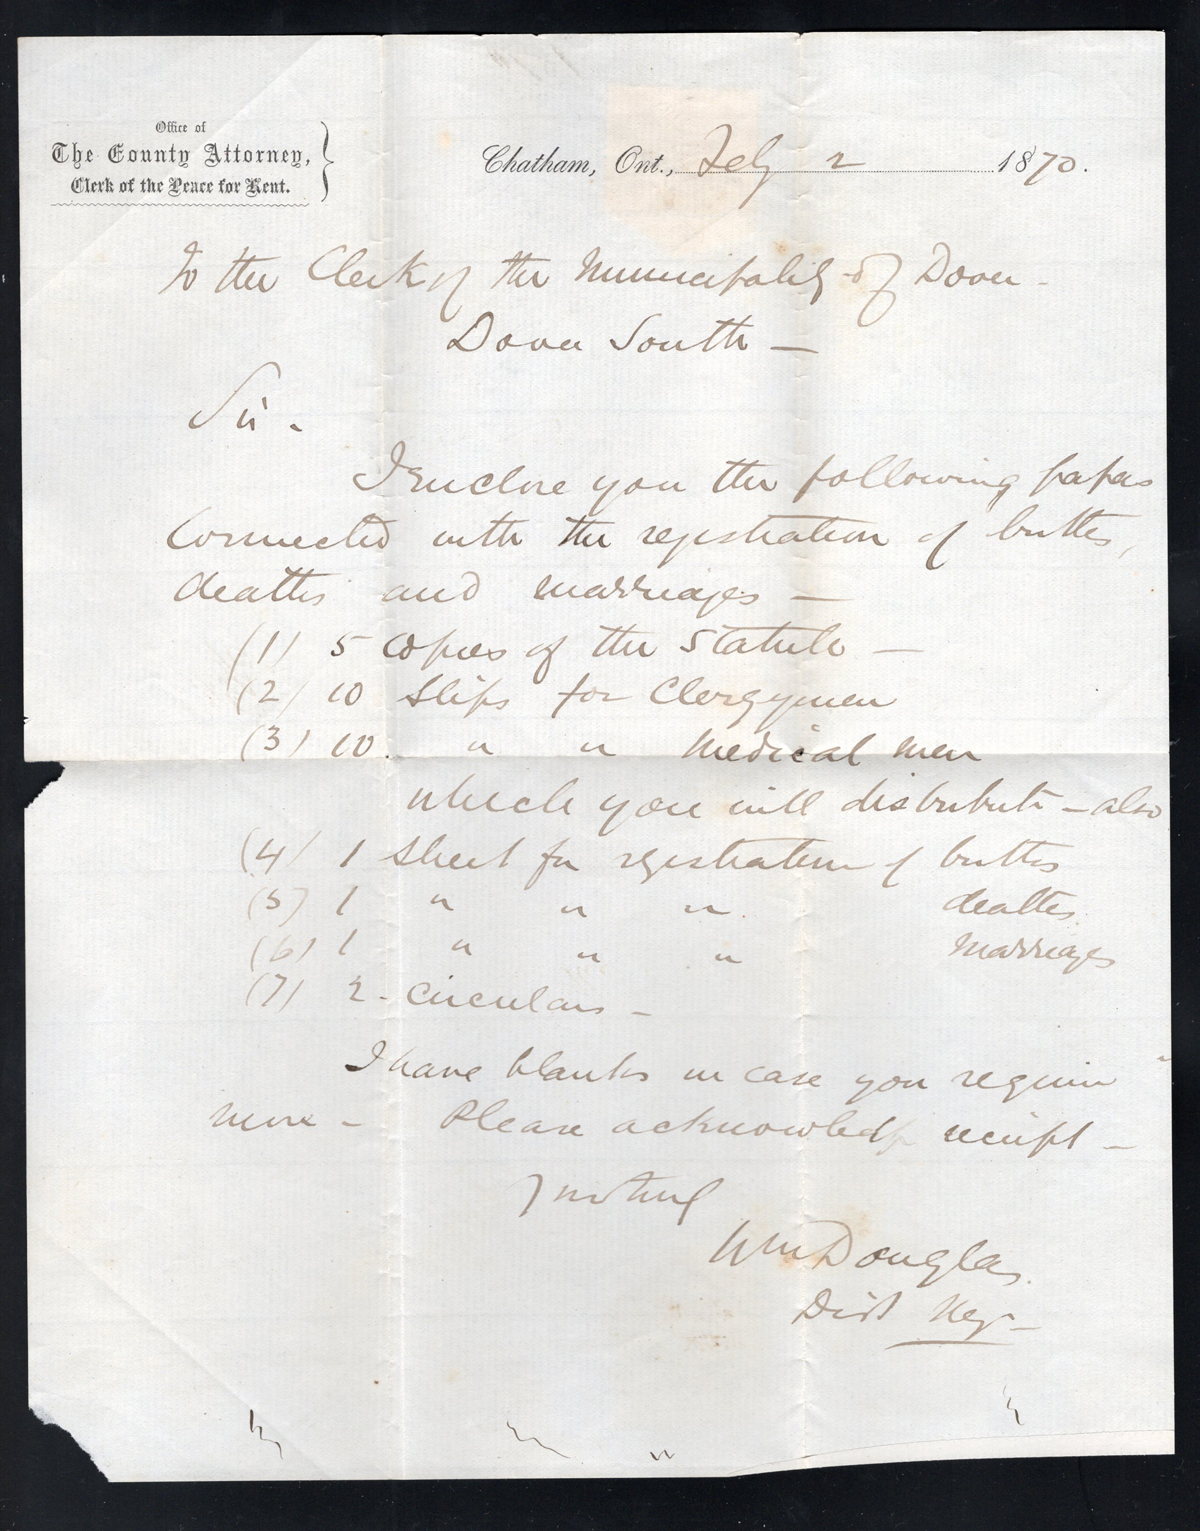 Office of
The County Attorney,
Clerk of the Peace for Kent.
Chatham, Ont., Feby 2 1870.
To the Clerk of the Municipality of Dover -
Dover South —
Sir -
I enclose you the following papers
connected with the registration of births,
deaths and marriages —
(1) 5 copies of the Statute —
(2) 10 Slips for Clergymen
(3) 10 " " Medical men
which you will distribute — also
(4) 1 Sheet for registration of births
(5) 1 " " " deaths
(6) 1 " " " Marriages
(7) 2 - circulars -
I have blanks in case you require
more - Please acknowledge receipt —
Yrs truly
Wm Douglas
Dist Reg -